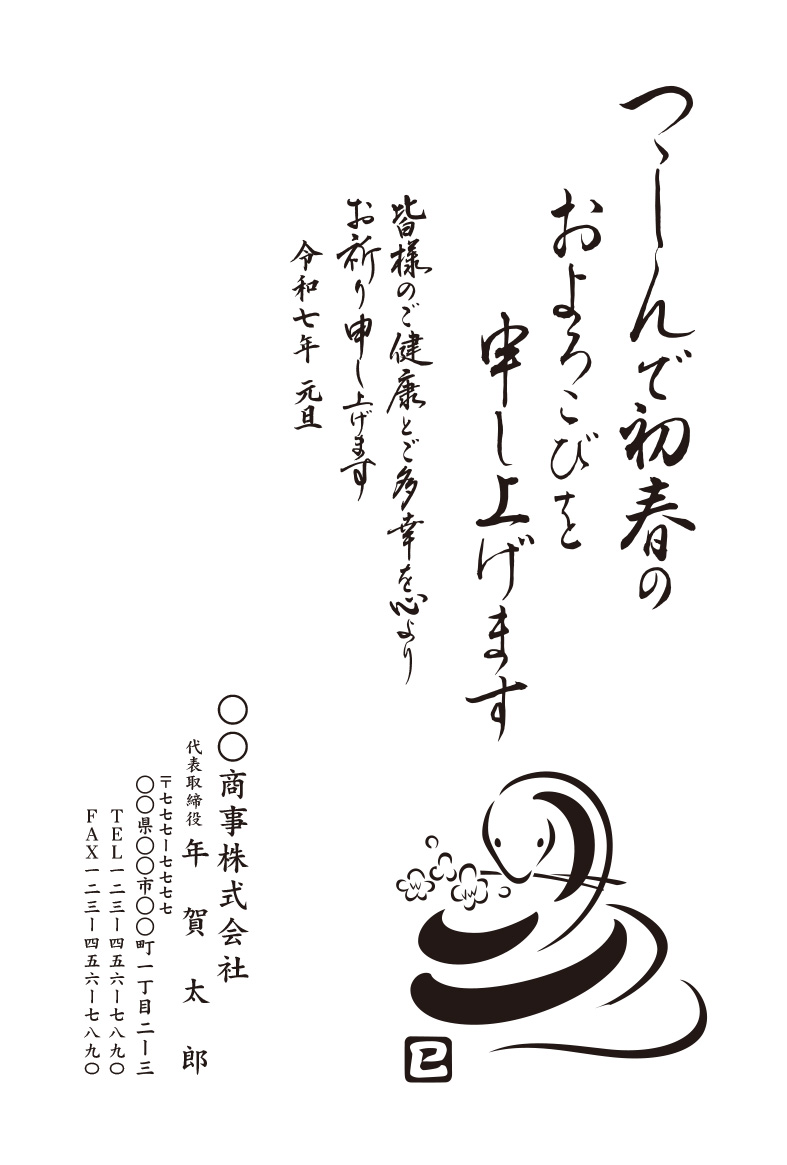 つゝしんで初春の
およろこびを
申し上げます
皆様のご健康とご多幸を心より
お祈り申し上げます
令和七年 元旦
〇〇商事株式会社
代表取締役 年賀太郎
〒七七七ー七七七七
〇〇県〇〇市〇〇町一丁目二ー三
TEL一二三ー四五六ー七八九〇
FAX一二三ー四五六ー七八九〇
巳